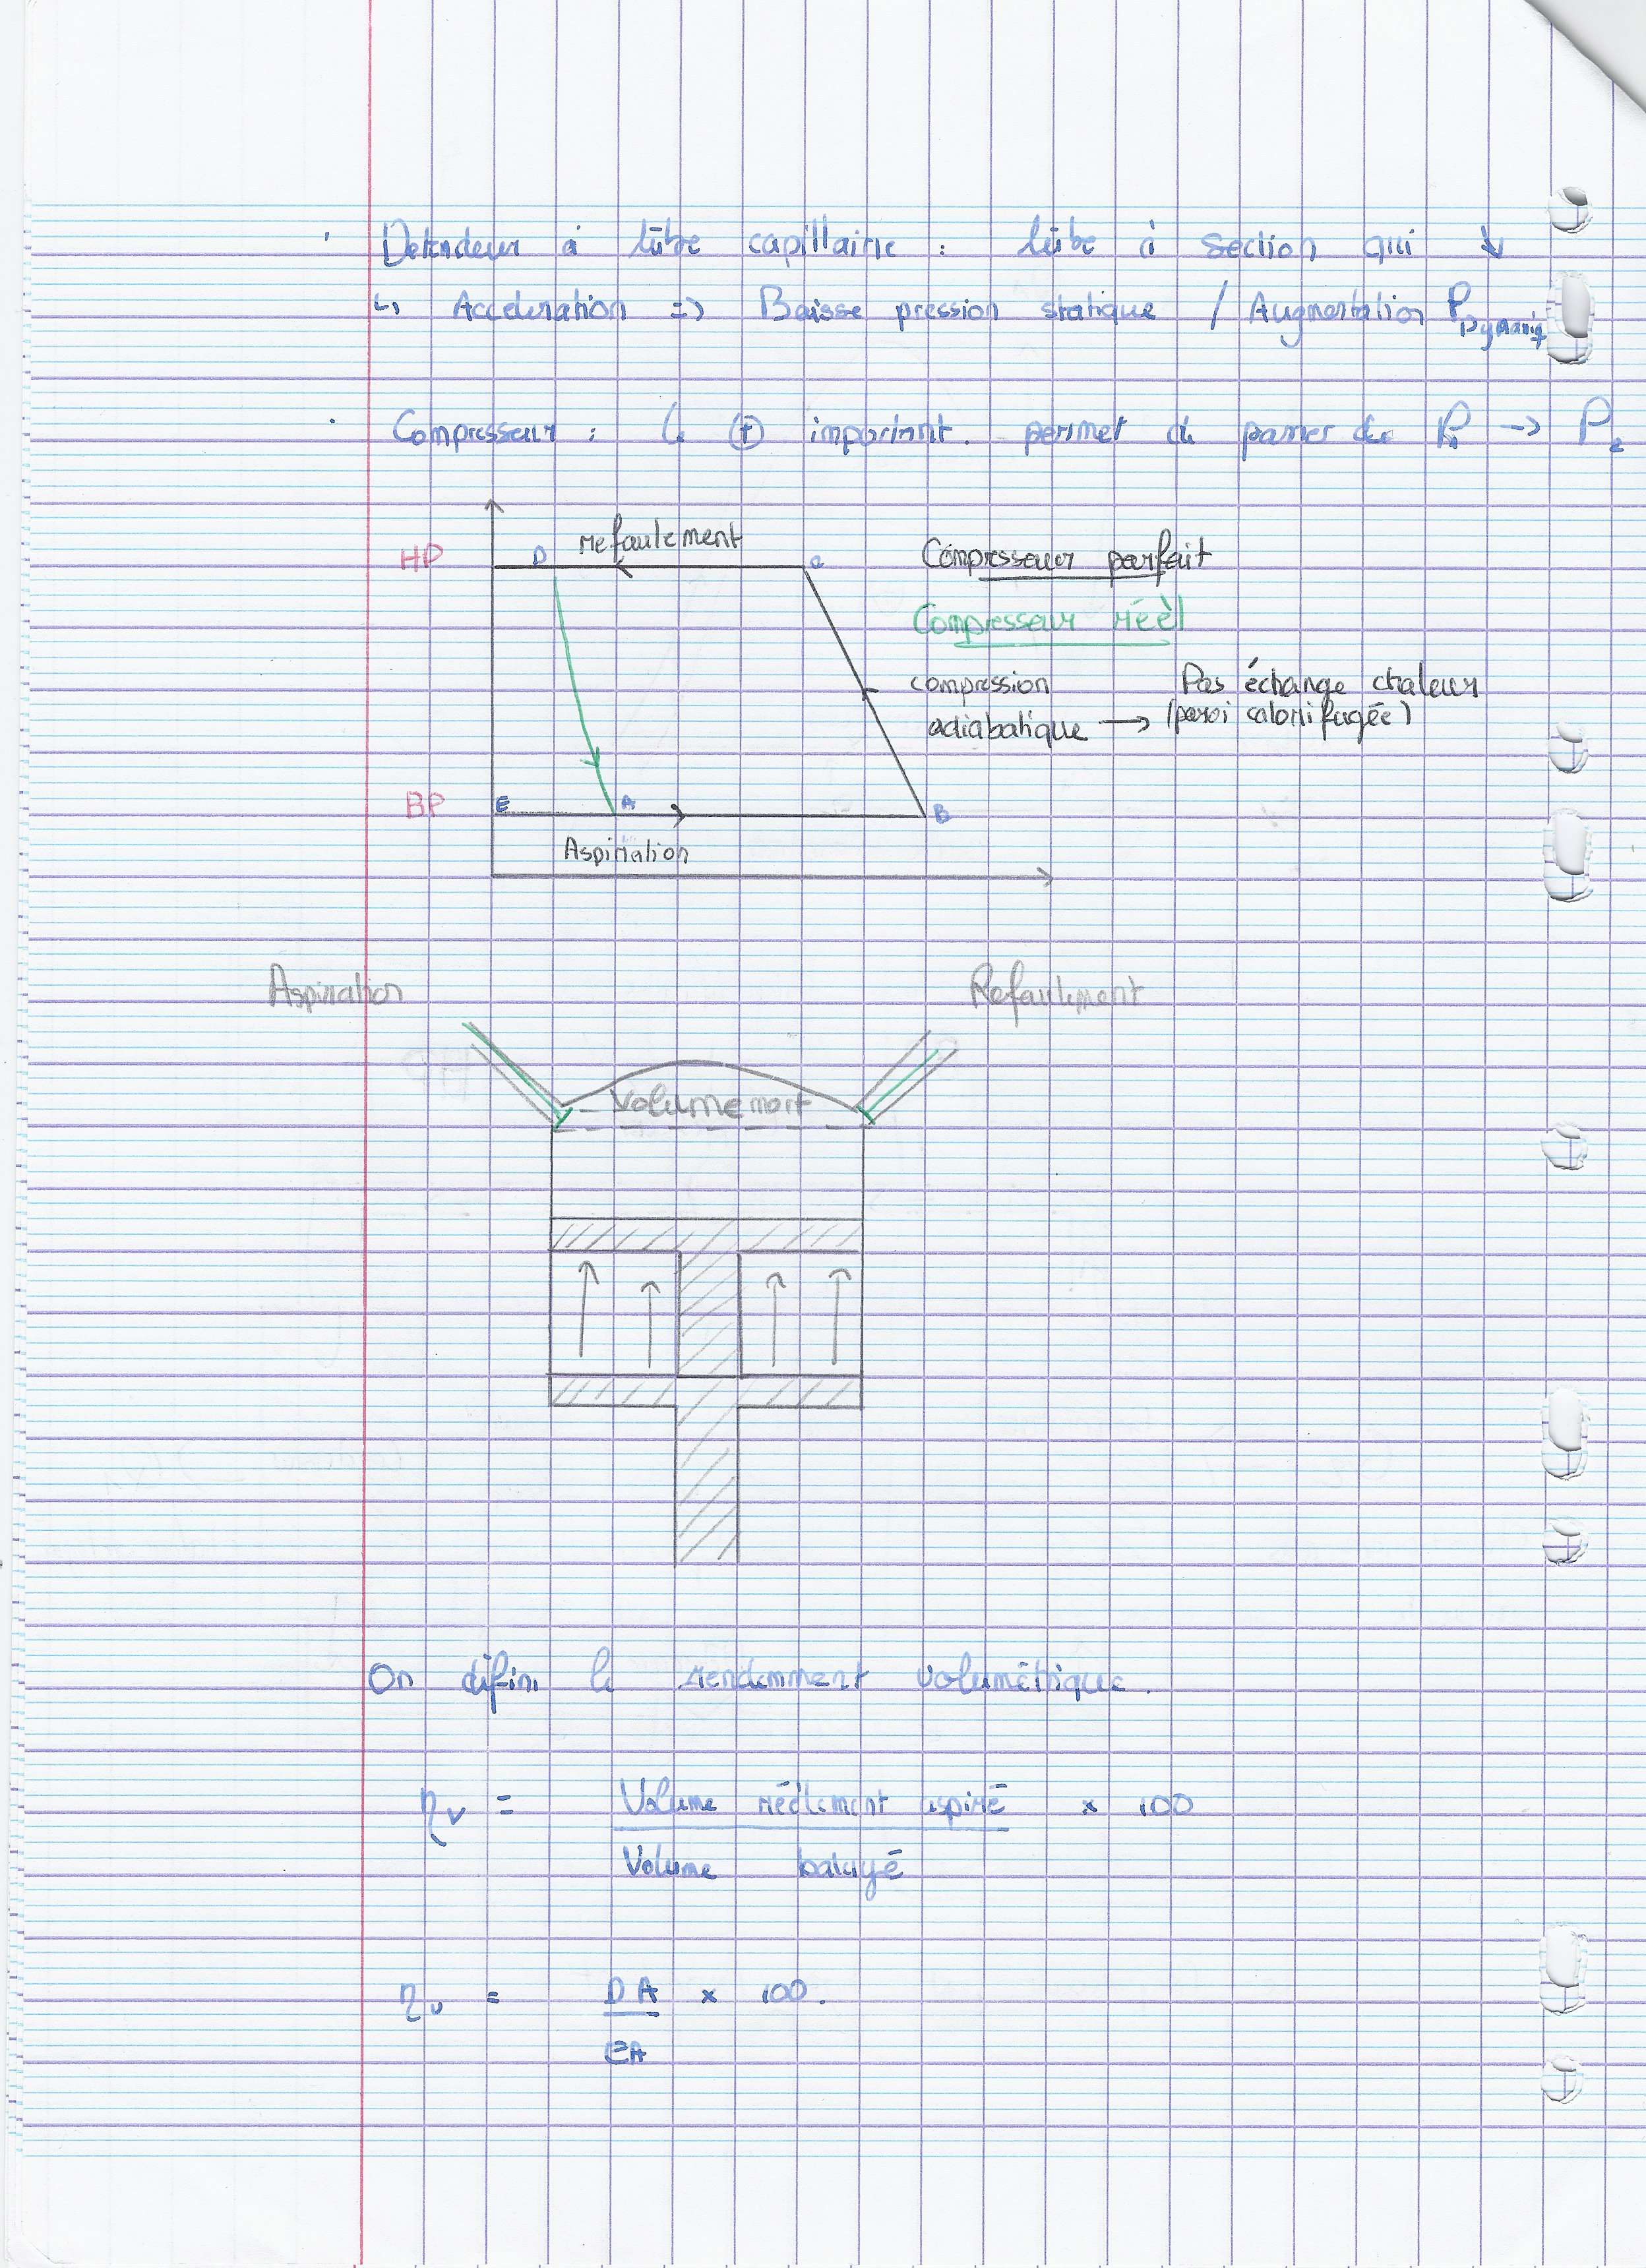 . Detendeur à tube capillaire : tube à section qui ↓
↳ Accéleration => Baisse pression statique / Augmentation P Dynamiq
. Compresseur : le ⊕ important. permet de passer de P1 → P2
HP D refoulement C Compresseur parfait
Compresseur réèl
compression Pas échange chaleur
adiabatique → (paroi calorifugée)
BP E A B
Aspiration
Aspiration Refoulement
Volume mort
On défini le rendemment volumétrique.
ηv = Volume réélement aspiré × 100
Volume balayé
ηv = DA × 100.
EA